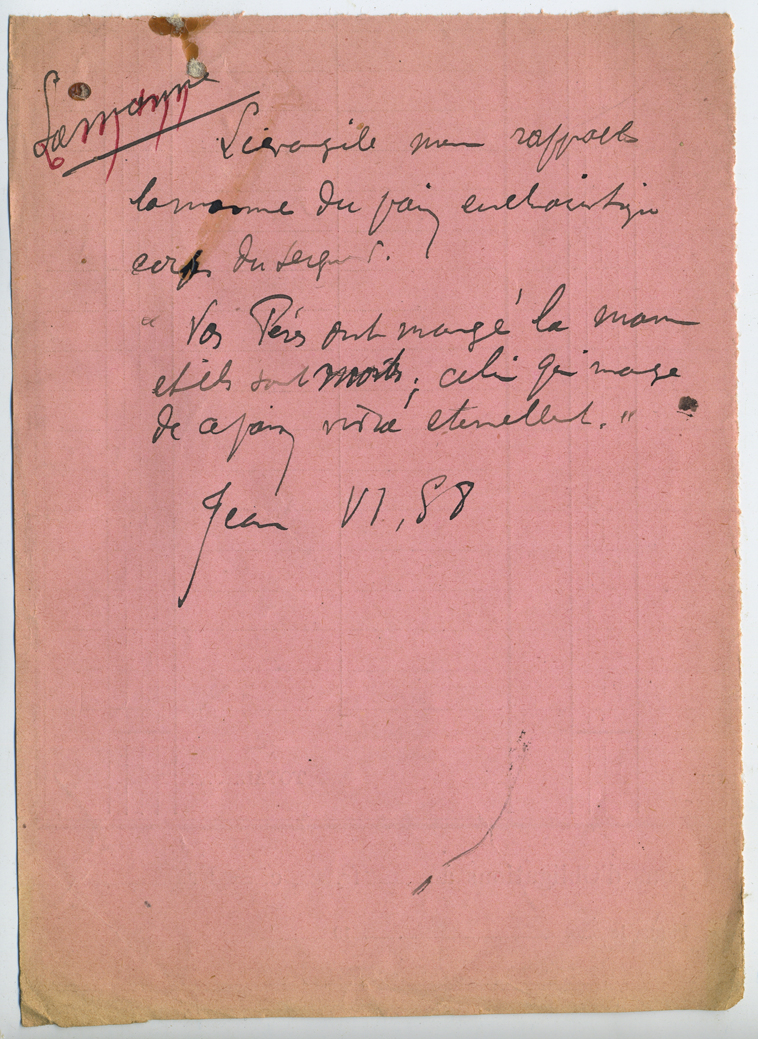 La manne
L'évangile nous rappelle
la manne du pain eucharistique
corps du
" Vos Pères ont mangé la manne
et ils sont morts ; celui qui mange
de ce pain vivra éternellemt. "
Jean VI, 58